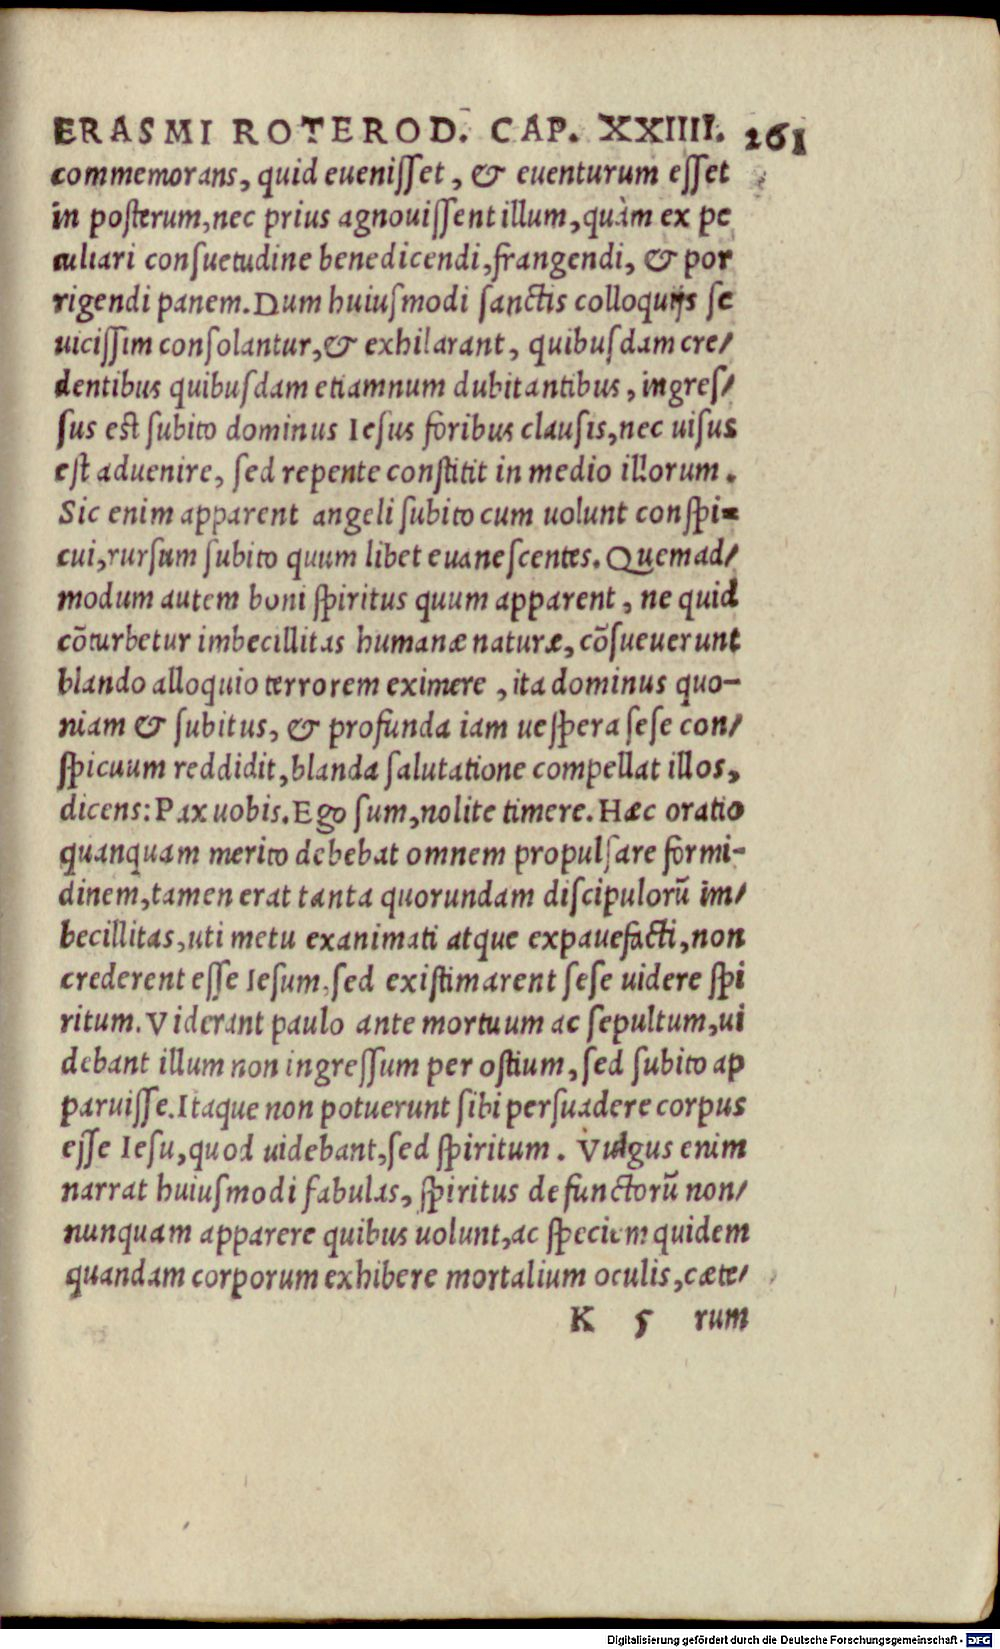 ERASMI ROTEROD. CAP. XXIIII. 261
commemorans, quid eueniſſet, & euenturum eſſet
in poſterum, nec prius agnouiſſent illum, quàm ex pe
culiari conſuetudine benedicendi, frangendi, & por
rigendi panem. Dum huiuſmodi ſanctis colloquijs ſe
uiciſſim conſolantur, & exhilarant, quibuſdam cre/
dentibus quibuſdam etiamnum dubitantibus, ingreſ/
ſus est ſubito dominus Ieſus foribus clauſis, nec uiſus
eſt aduenire, ſed repente conſtitit in medio illorum.
Sic enim apparent angeli ſubito cum uolunt conſpi=
cui, rurſum ſubito quum libet euaneſcentes. Quemad/
modum autem boni ſpiritus quum apparent, ne quid
cōturbetur imbecillitas humanæ naturæ, cōſueuerunt
blando alloquio terrorem eximere, ita dominus quo-
niam & ſubitus, & profunda iam ueſpera ſeſe con/
ſpicuum reddidit, blanda ſalutatione compellat illos,
dicens: Pax uobis. Ego ſum, nolite timere. Hæc oratio
quanquam merito debebat omnem propulſare formi-
dinem, tamen erat tanta quorundam diſcipulorū im/
becillitas, uti metu exanimati atque expauefacti, non
crederent eſſe Ieſum, ſed exiſtimarent ſeſe uidere ſpi
ritum. Viderant paulo ante mortuum ac ſepultum, ui
debant illum non ingreſſum per oſtium, ſed ſubito ap
paruiſſe. Itaque non potuerunt ſibi perſuadere corpus
eſſe Ieſu, quod uidebant, ſed ſpiritum. Vulgus enim
narrat huiuſmodi fabulas, ſpiritus defunctorū non/
nunquam apparere quibus uolunt, ac ſpeciem quidem
quandam corporum exhibere mortalium oculis, cæte/
K 5 rum
Digitalisierung gefördert durch die Deutsche Forschungsgemeinschaft - DFG